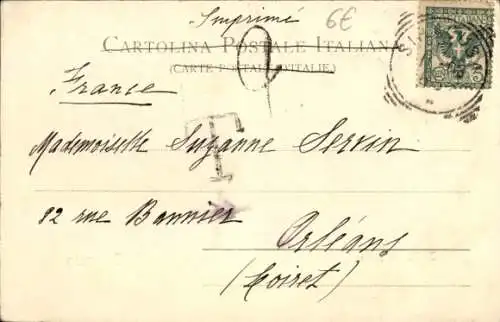 Imprimé
6€
CARTOLINA POSTALE ITALIANA
(CARTE POSTALE D'ITALIE)
2
France
T
Mademoiselle Suzanne Servin
82 rue Bannier
Orléans
(Loiret)